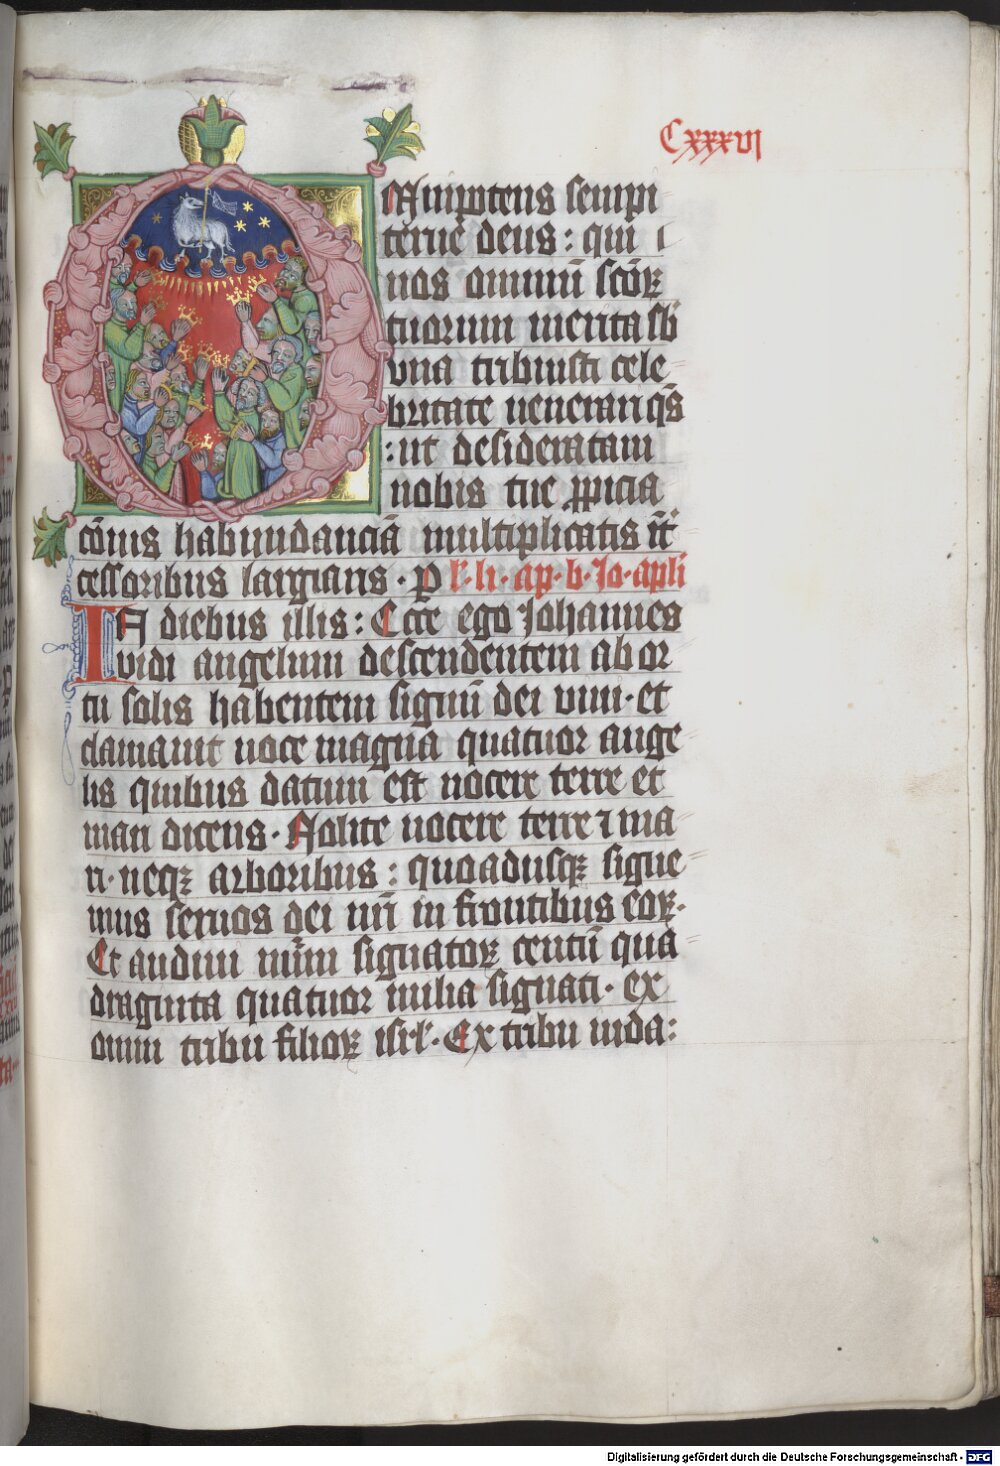 Cxxxvi
Omnipotens sempi
terne deus: qui
nos omniū scōꝝ
tuorum merita sb̄
vna tribuisti cele
britate venerari qs̄
: ut desideratam
nobis tue ꝓpicia
cōnis habundanciā multiplicatis īt
cessoribus largiaris · P l·li·ap·b·Jo·apli
In diebus illis: Ecce ego Johannes
vidi angelum descendentem ab or
tu solis habentem signū dei vivi· et
clamavit voce magna quatuor ange
lis quibus datum est nocere terre et
mari dicens· Nolite nocere terre ⁊ ma
ri· neqꝫ arboribus: quoadusqꝫ signe
mus servos dei nr̄i in frontibus eoꝝ·
Et audivi nūm signatoꝝ centū qua
draginta quatuor milia signati· ex
omni tribu filioꝝ isrl̕· Ex tribu iuda:
Digitalisierung gefördert durch die Deutsche Forschungsgemeinschaft - DFG